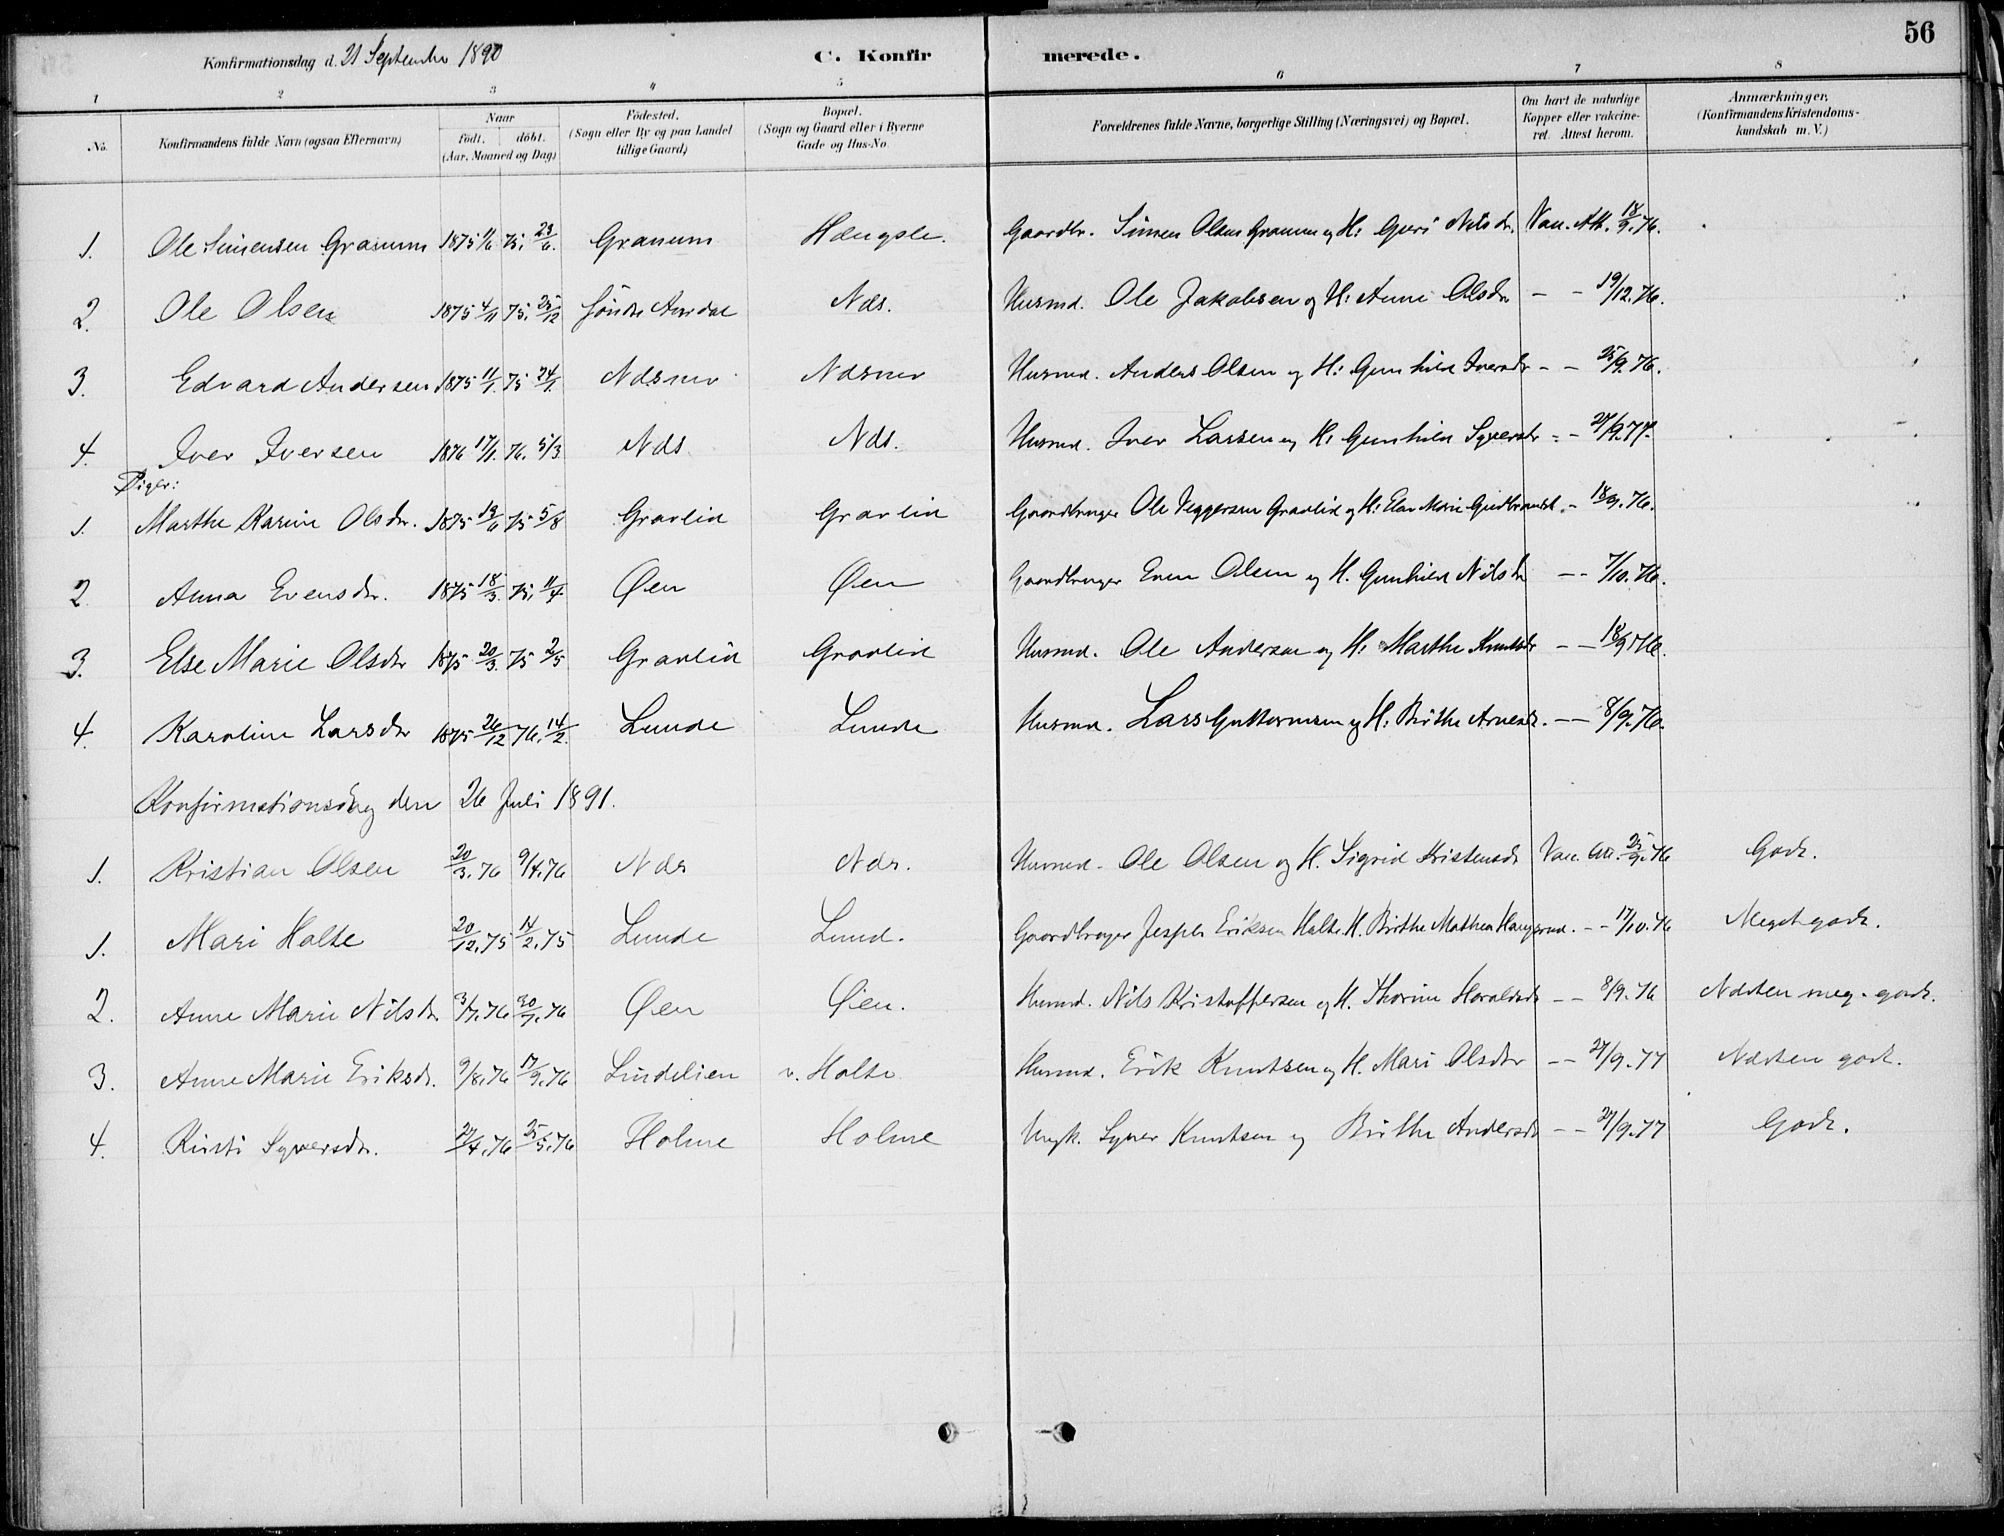 56
Konfirmationsdag d. 21 September 1890
C. Konfirmerede.
1 2 3 4 5 6 7 8
No. Konfirmandens fulde Navn (ogsaa Efternavn) Naar födt. döbt. (Aar, Maaned og Dag) Födested. (Sogn eller By og paa Landet tillige Gaard) Bopæl. (Sogn og Gaard eller i Byerne Gade og Hus-No. Forældrenes fulde Navne, borgerlige Stilling (Næringsvei) og Bopæl. Om havt de naturlige Kopper eller vaccineret. Attest herom. Anmærkninger, (Konfirmandens Kristendomskundskab m. V.)
1. Ole Simensen Granum 1875 11/6 75. 23/6. Granum Hængsle. Gaardbr. Simen Olsen Granum og H: Guri Nilsdr. Vac. Att. 18/9.76.
2. Ole Olsen 1875 4/11 75. 25/12 Søndr Aurdal Nds. Husmd. Ole Jakobsen og H: Anne Olsdr - - 19/12.76.
3. Edvard Andersen 1875 11/1. 75 24/1. Ndsnes Ndsnes Husmd. Anders Olsen og H: Gunhild Iversdr - - 25/9.76.
4. Iver Iversen 1876 17/1. 76. 5/3. Nds. Nds. Husmd. Iver Larsen og H: Gunhild Syversdr - - 27/9.77.
Piger:
1. Marthe Karine Olsdr. 1875 19/6 75 5/8 Gravlid Gravlid Gaardbruger Ole Veggersen Gravlid og H: Else Marie Gudbrandsd. - 18/9.76.
2. Anna Evensdr. 1875 18/3. 75. 11/4 Øen Øen Gaardbruger Even Olsen og H. Gunhild Nilsdr - - 7/10.76.
3. Else Marie Olsdr 1875 20/3. 75 2/5 Gravlid Gravlid Husmd. Ole Andersen og H: Marthe Knudsdr - - 18/9 76.
4. Karoline Larsdr 1875 26/12 76. 14/2. Lunde Lunde Husmd. Lars Guttormsen og H: Birthe Arnesdr. - - 8/9.76.
Konfirmationsdag den 26 Juli 1891.
1. Kristian Olsen 20/3.76 9/4.76 Nds Nds. Husmd. Ole Olsen og H. Sigrid Kristensdr Vac. Att. 25/9.76 Godt.
1. Mari Holte 20/12.75 14/2.75 Lunde Lund. Gaardbruger Jesper Eriksen Holte H. Birthe Mathea Haugerud. - - 17/10.76 Meget godt.
2. Anne Marie Nilsdr 3/7.76 30/7.76 Øen Øien. Husmd. Nils Kristoffersen og H. Thorine Haraldsdr - - 8/9.76 Næsten meg. godt.
3. Anne Marie Eriksdr. 9/8.76 17/9.76 Lindelien v. Holte Husmd. Erik Knutsen og H. Mari Olsdr - - 27/9.77 Næsten godt.
4. Kirsti Syversdr. 27/4.76 25/5.76 Holme Holme Ungk. Syver Knutsen og Birthe Andersdr - - 27/9.77 Godt.